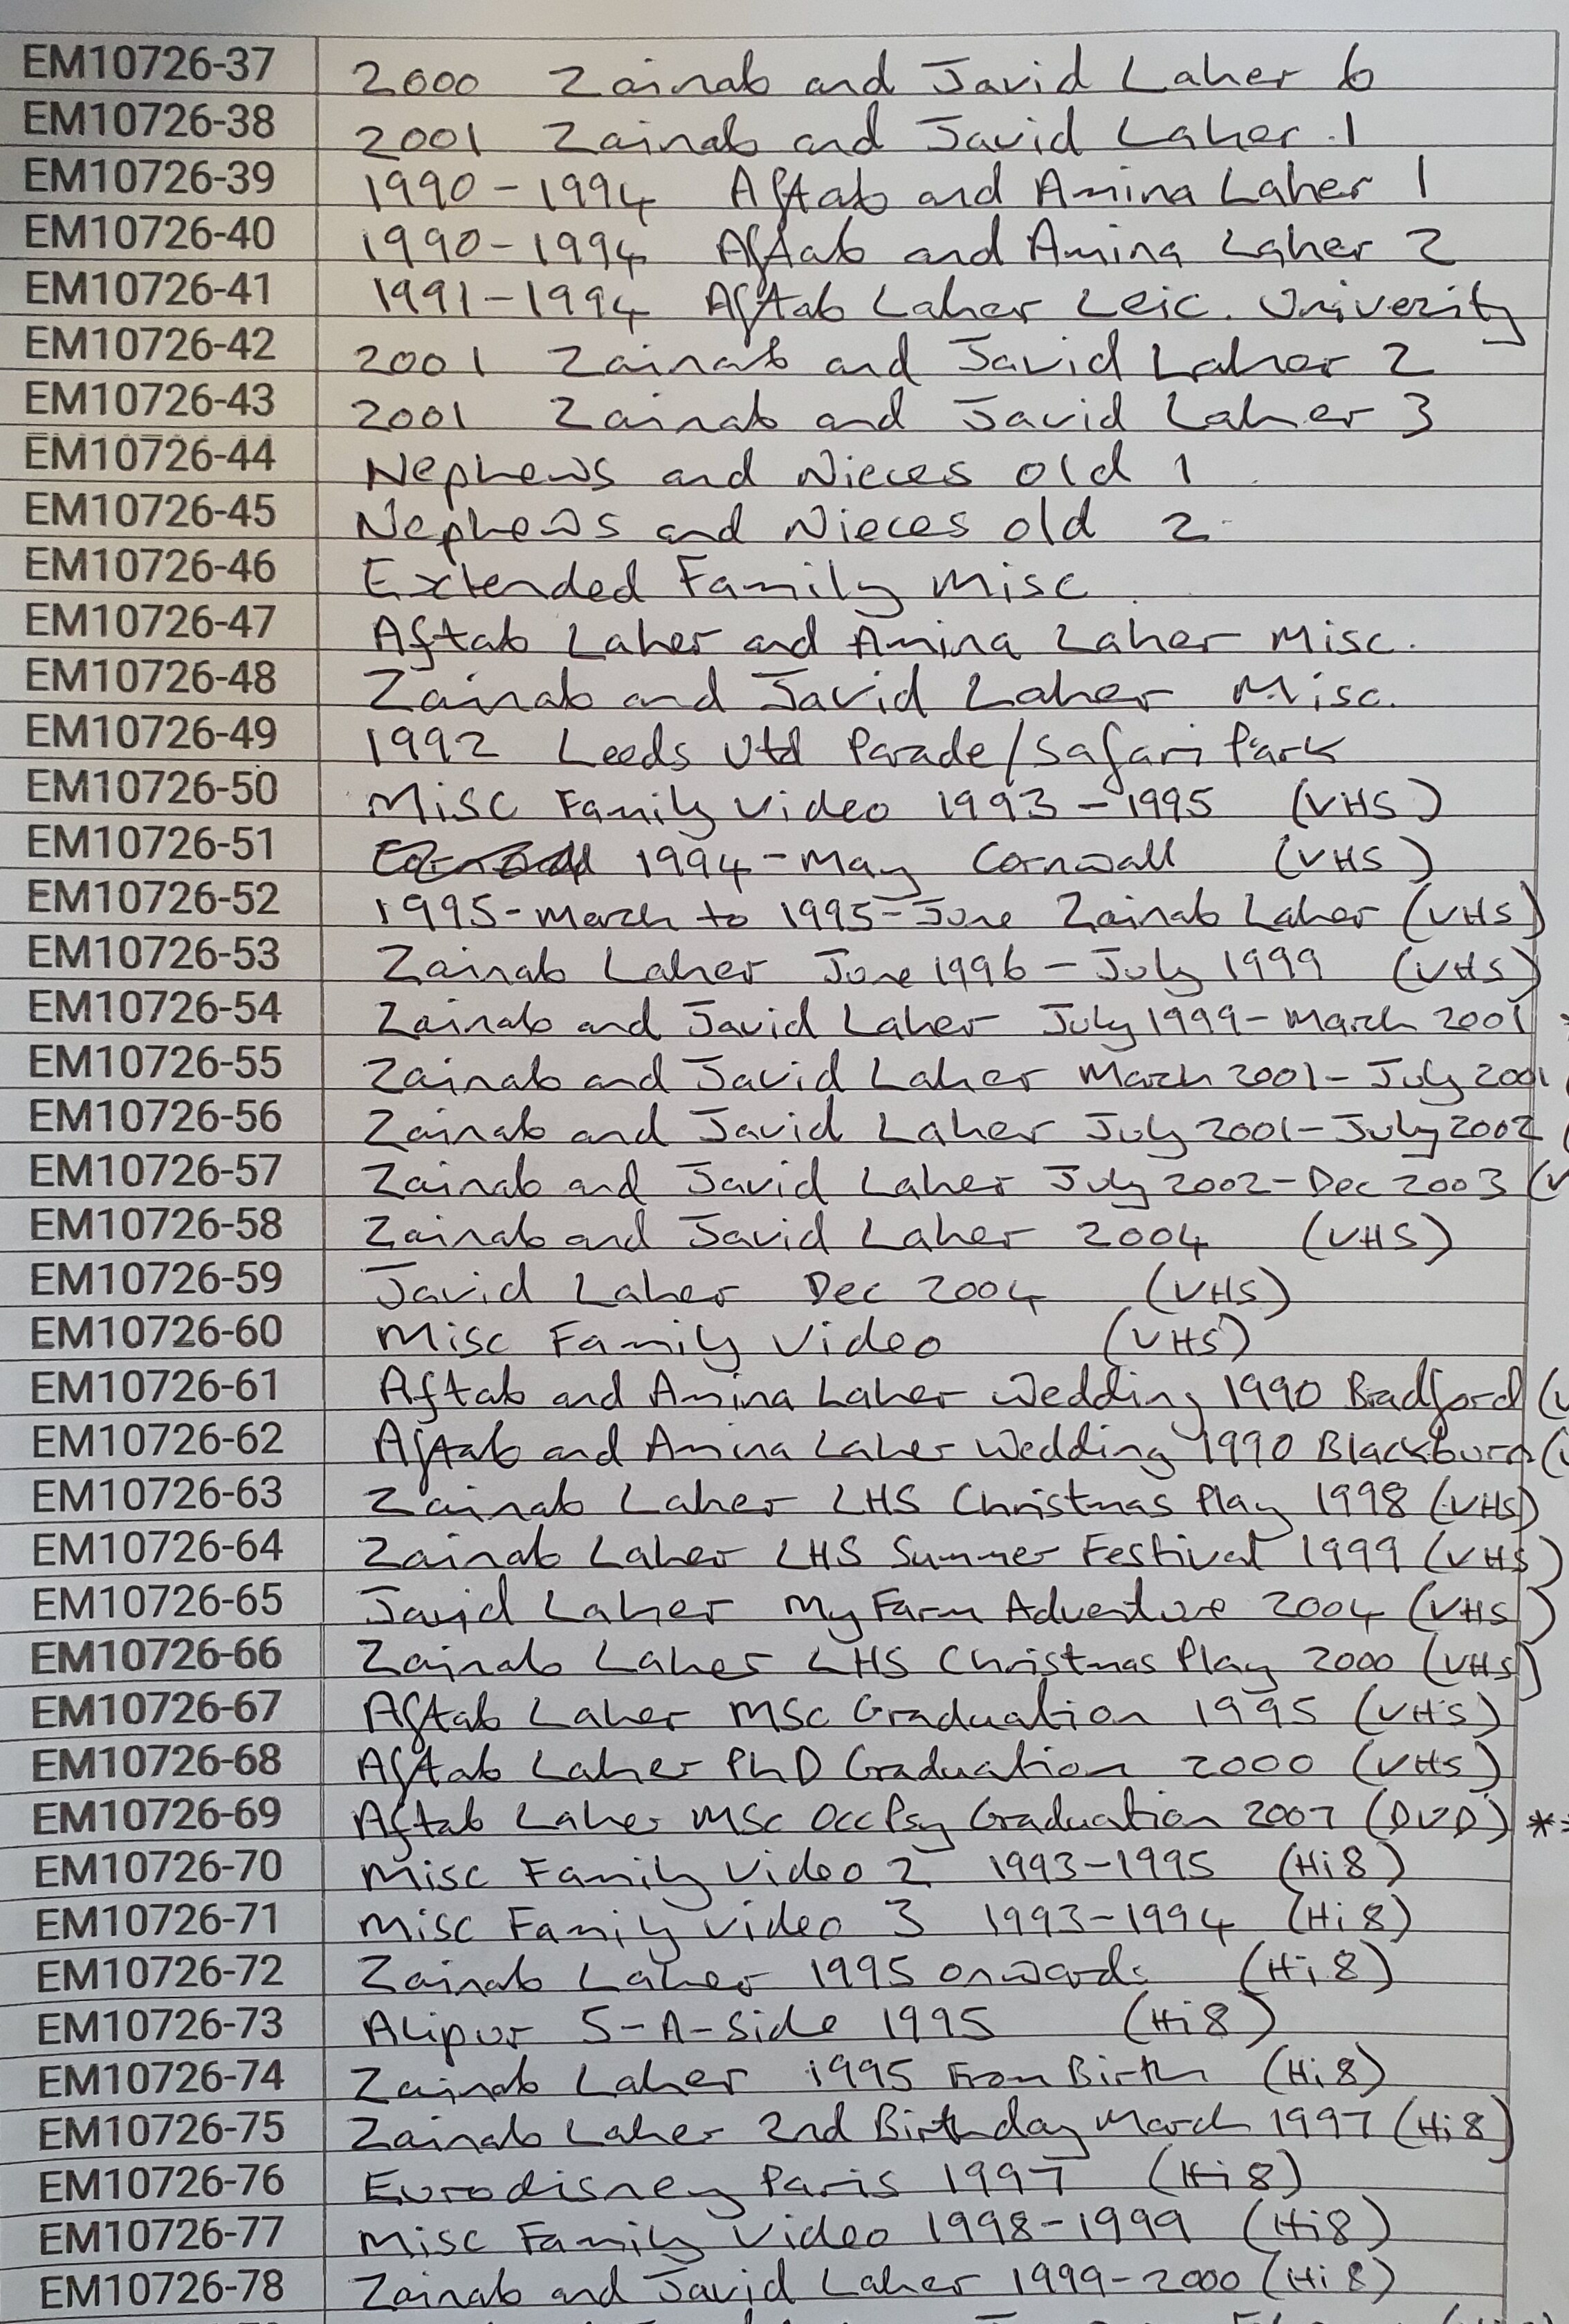 EM10726-37 2000 Zainab and Javid Laher 6
EM10726-38 2001 Zainab and Javid Laher 1
EM10726-39 1990-1994 Aftab and Amina Laher 1
EM10726-40 1990-1994 Aftab and Amina Laher 2
EM10726-41 1991-1994 Aftab Laher Leic. Univerity
EM10726-42 2001 Zainab and Javid Laher 2
EM10726-43 2001 Zainab and Javid Laher 3
EM10726-44 Nephews and Nieces old 1
EM10726-45 Nephews and Nieces old 2
EM10726-46 Extended Family Misc
EM10726-47 Aftab Laher and Amina Laher Misc.
EM10726-48 Zainab and Javid Laher Misc.
EM10726-49 1992 Leeds Utd Parade/Safari Park
EM10726-50 Misc Family Video 1993-1995 (VHS)
EM10726-51 1994-May Cornwall (VHS)
EM10726-52 1995-March to 1995-June Zainab Laher (VHS)
EM10726-53 Zainab Laher June 1996 - July 1999 (VHS)
EM10726-54 Zainab and Javid Laher July 1999-March 2001
EM10726-55 Zainab and Javid Laher March 2001- July 2001
EM10726-56 Zainab and Javid Laher July 2001-July 2002
EM10726-57 Zainab and Javid Laher July 2002-Dec 2003 (V
EM10726-58 Zainab and Javid Laher 2004 (VHS)
EM10726-59 Javid Laher Dec 2004 (VHS)
EM10726-60 Misc Family Video (VHS)
EM10726-61 Aftab and Amina Laher Wedding 1990 Bradford (V
EM10726-62 Aftab and Amina Laher Wedding 1990 Blackburn (V
EM10726-63 Zainab Laher LHS Christmas Play 1998 (VHS)
EM10726-64 Zainab Laher LHS Summer Festival 1999 (VHS)
EM10726-65 Javid Laher My Farm Adventure 2004 (VHS)
EM10726-66 Zainab Laher LHS Christmas Play 2000 (VHS)
EM10726-67 Aftab Laher MSc Graduation 1995 (VHS)
EM10726-68 Aftab Laher PhD Graduation 2000 (VHS)
EM10726-69 Aftab Laher MSc Occ Psy Graduation 2007 (DVD) **
EM10726-70 Misc Family Video 2 1993-1995 (Hi8)
EM10726-71 Misc Family Video 3 1993-1994 (Hi8)
EM10726-72 Zainab Laher 1995 onwards (Hi8)
EM10726-73 Alipur 5-A-Side 1995 (Hi8)
EM10726-74 Zainab Laher 1995 From Birth (Hi8)
EM10726-75 Zainab Laher 2nd Birthday March 1997 (Hi8)
EM10726-76 Eurodisney Paris 1997 (Hi8)
EM10726-77 Misc Family Video 1998-1999 (Hi8)
EM10726-78 Zainab and Javid Laher 1999-2000 (Hi8)